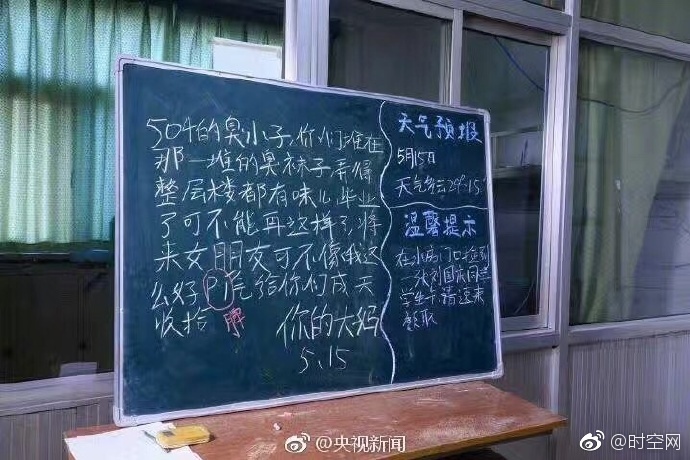 504的臭小子,你们堆在
那一堆的臭袜子,弄得
整层楼都有味儿,毕业
了可不能再这样了,将
来女朋友可不像俄这
么好Pi气给你们成天
收拾 脾
你的大妈
5、15
天气预报
5月15日
天气多云29°-15°
温馨提示
在小房门口捡到
张刘国庆同学
学生卡请速来
领取
@央视新闻
@时空网